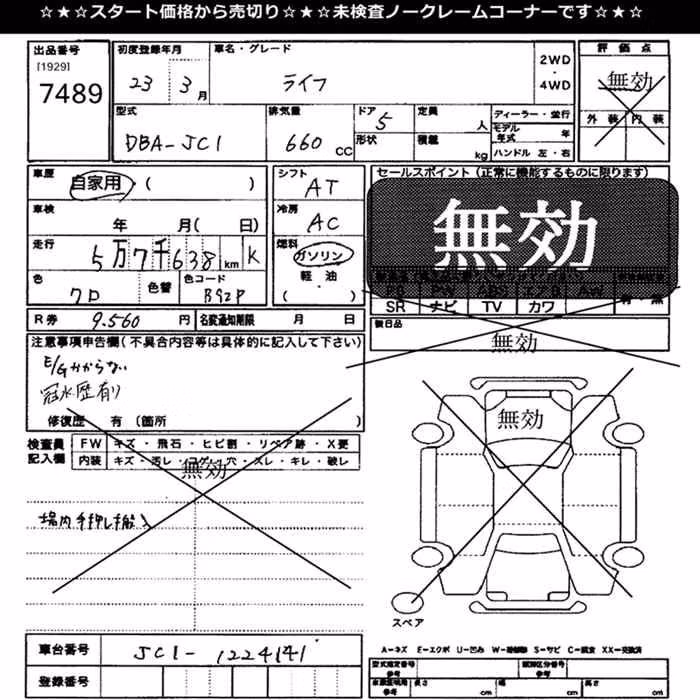 ☆★☆★スタート価格から売切り☆★☆★未検査ノークレームコーナーです☆★☆
出品番号
[1929]
7489
初度登録年月
23 3月
車名・グレード
ライフ
2WD
・
4WD
評価点
無効
外装 内装
型式
DBA-JC1
排気量
660 CC
ドア
5
形状
定員
人
積載
kg
ディーラー・並行
モデル年式 年
ハンドル 左・右
車歴
自家用・( )
車検
年 月( 日)
走行
5万7千638km K
色
クロ
色替
色コード
B92P
シフト
AT
冷房
AC
燃料
ガソリン
軽・油
( )
セールスポイント(正常に機能するものに限ります)
無効
SR ナビ TV カワ 有・無
後日品
無効
R券 9.560 円
名変通知期限 月 日
注意事項申告欄(不具合内容等は具体的に記入して下さい)
E/Gかからない
冠水歴有り
修復歴 有(箇所 )
検査員記入欄
FW キズ・飛石・ヒビ割・リペア跡・X要
内装 キズ・汚レ・コゲ・穴・スレ・キレ・破レ
無効
場内手押し搬入
無効
スペア
車台番号
JC1-1224141
登録番号
A-キズ E-エクボ U-凹み S-サビ C-腐食 XX-交換済
型式指定番号
参考
類別区分番号
参考
長さ cm
幅 cm
高さ cm